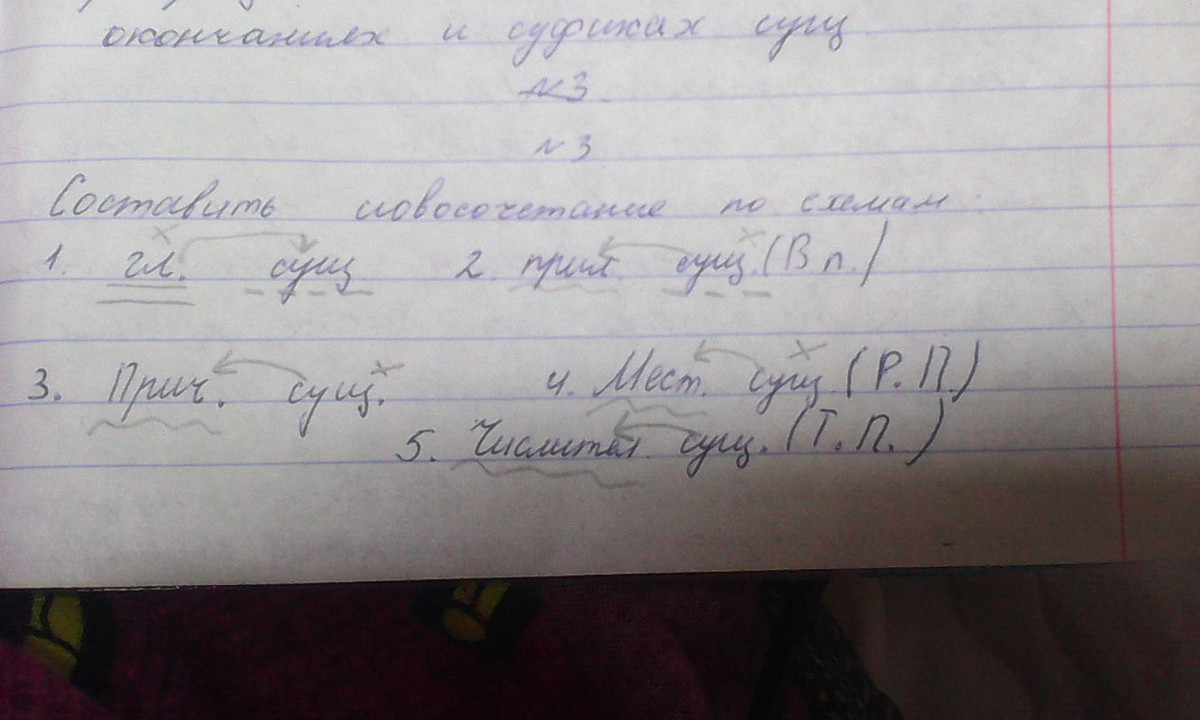 окончаниях и суфиках сущ.
№3
№3
Составить словосочетание по схемам:
1. гл. сущ 2. прил. сущ. (В п.)
3. Прич. сущ. 4. Мест. сущ (Р. П.)
5. Числител. сущ. (Т. П.)